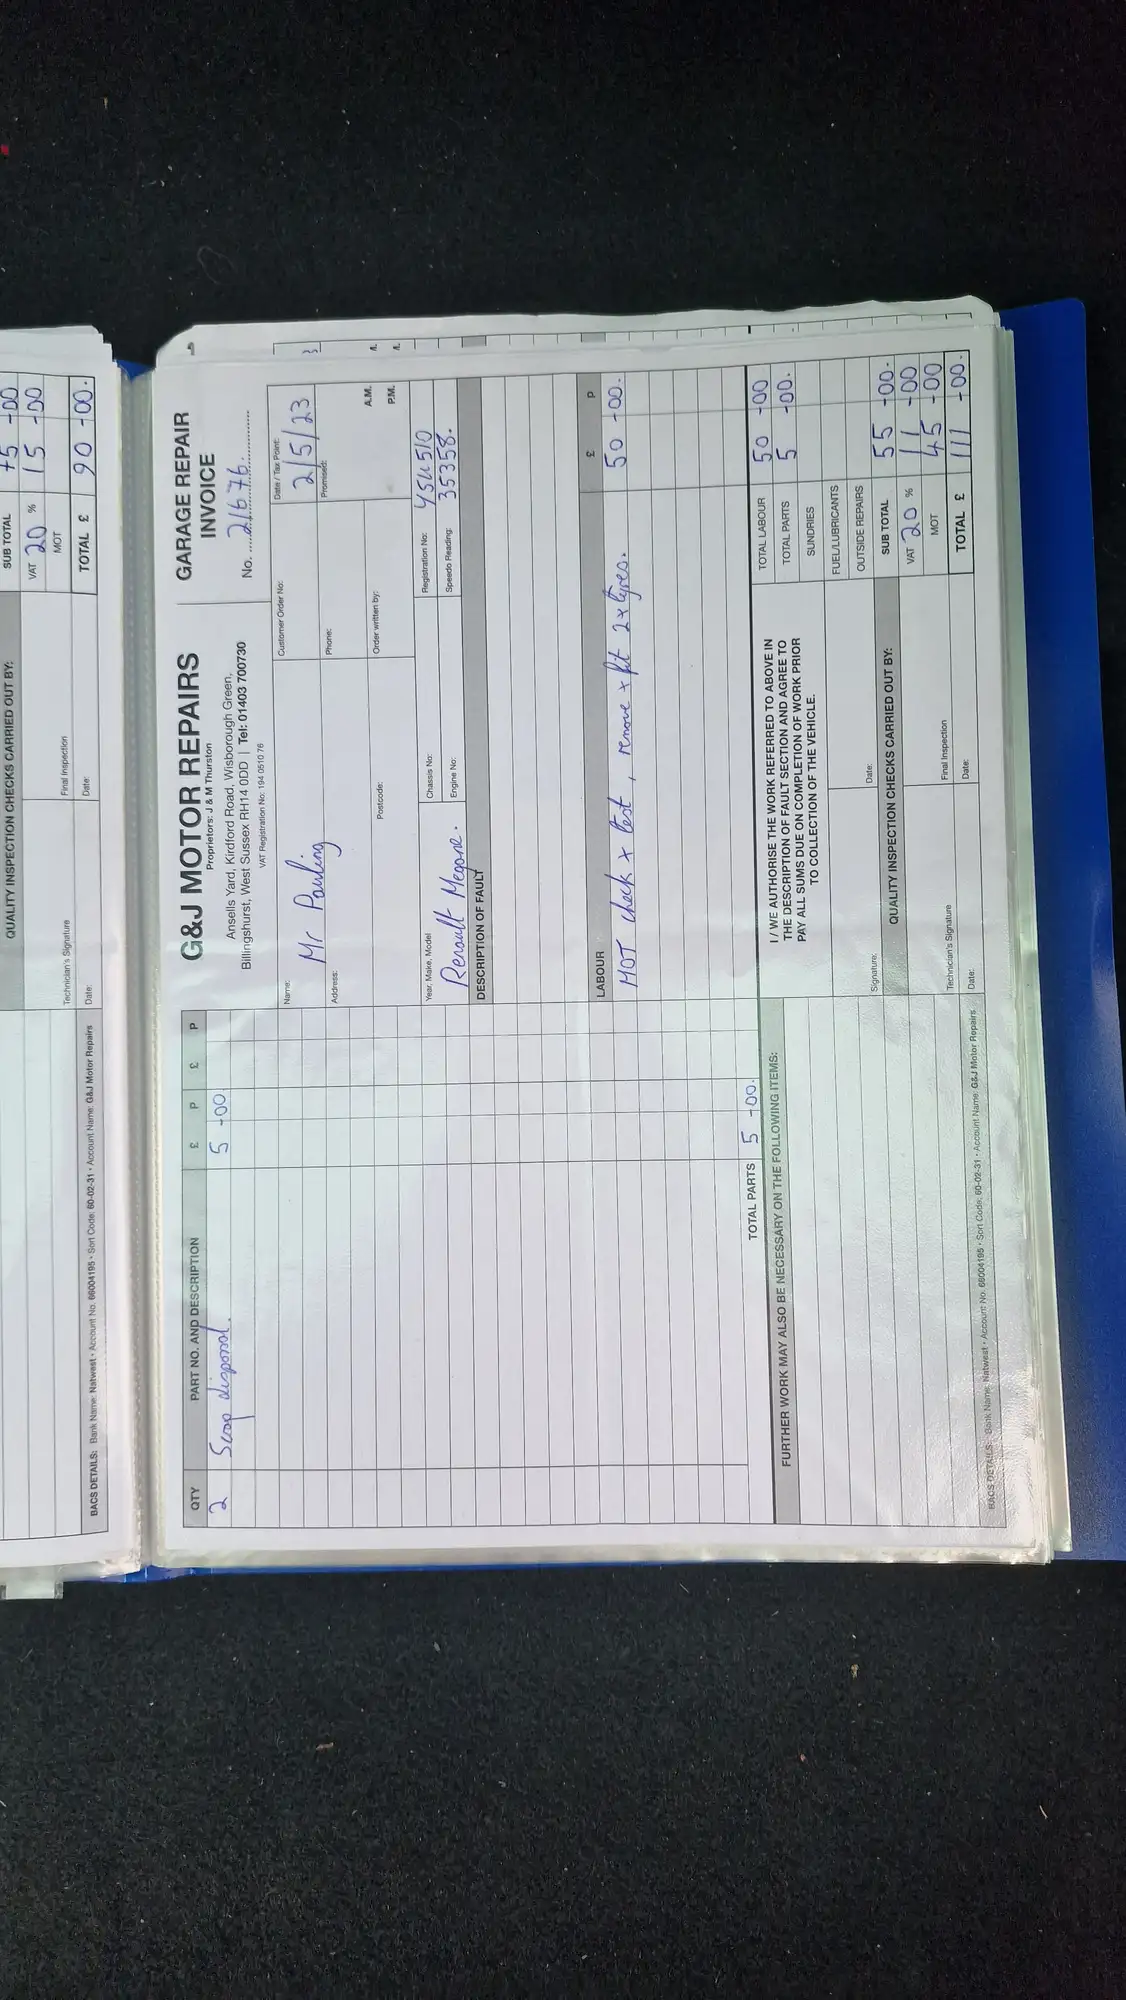 QUALITY INSPECTION CHECKS CARRIED OUT BY:
SUB TOTAL 75 -00
VAT 20 % 15 -00
MOT
Technician's Signature
Final Inspection
TOTAL £ 90 -00.
Date:
Date:
BACS DETAILS: Bank Name: Natwest • Account No. 66004195 • Sort Code: 60-02-31 • Account Name: G&J Motor Repairs
QTY PART NO. AND DESCRIPTION £ P £ P
2 Scrap disposal. 5 -00
TOTAL PARTS 5 -00.
FURTHER WORK MAY ALSO BE NECESSARY ON THE FOLLOWING ITEMS:
G&J MOTOR REPAIRS
Proprietors: J & M Thurston
Ansells Yard, Kirdford Road, Wisborough Green,
Billingshurst, West Sussex RH14 0DD | Tel: 01403 700730
VAT Registration No: 194 0510 76
GARAGE REPAIR
INVOICE
No. 21676.
Name: Mr Pauling
Customer Order No:
Date / Tax Point: 2/5/23
Address:
Phone:
Promised:
A.M.
P.M.
Postcode:
Order written by:
Year, Make, Model Renault Megane.
Chassis No:
Registration No:
Engine No:
Speedo Reading: 35358.
DESCRIPTION OF FAULT
LABOUR £ P
MOT check + test, remove + fit 2 x tyres. 50 -00.
I / WE AUTHORISE THE WORK REFERRED TO ABOVE IN
THE DESCRIPTION OF FAULT SECTION AND AGREE TO
PAY ALL SUMS DUE ON COMPLETION OF WORK PRIOR
TO COLLECTION OF THE VEHICLE.
TOTAL LABOUR 50 -00
TOTAL PARTS 5 -00.
SUNDRIES
FUEL/LUBRICANTS
OUTSIDE REPAIRS
Signature:
Date:
QUALITY INSPECTION CHECKS CARRIED OUT BY:
SUB TOTAL 55 -00.
VAT 20 % 11 -00
MOT 45 -00
Technician's Signature
Final Inspection
TOTAL £ 111 -00.
Date:
Date:
BACS DETAILS: Bank Name: Natwest • Account No. 66004195 • Sort Code: 60-02-31 • Account Name: G&J Motor Repairs